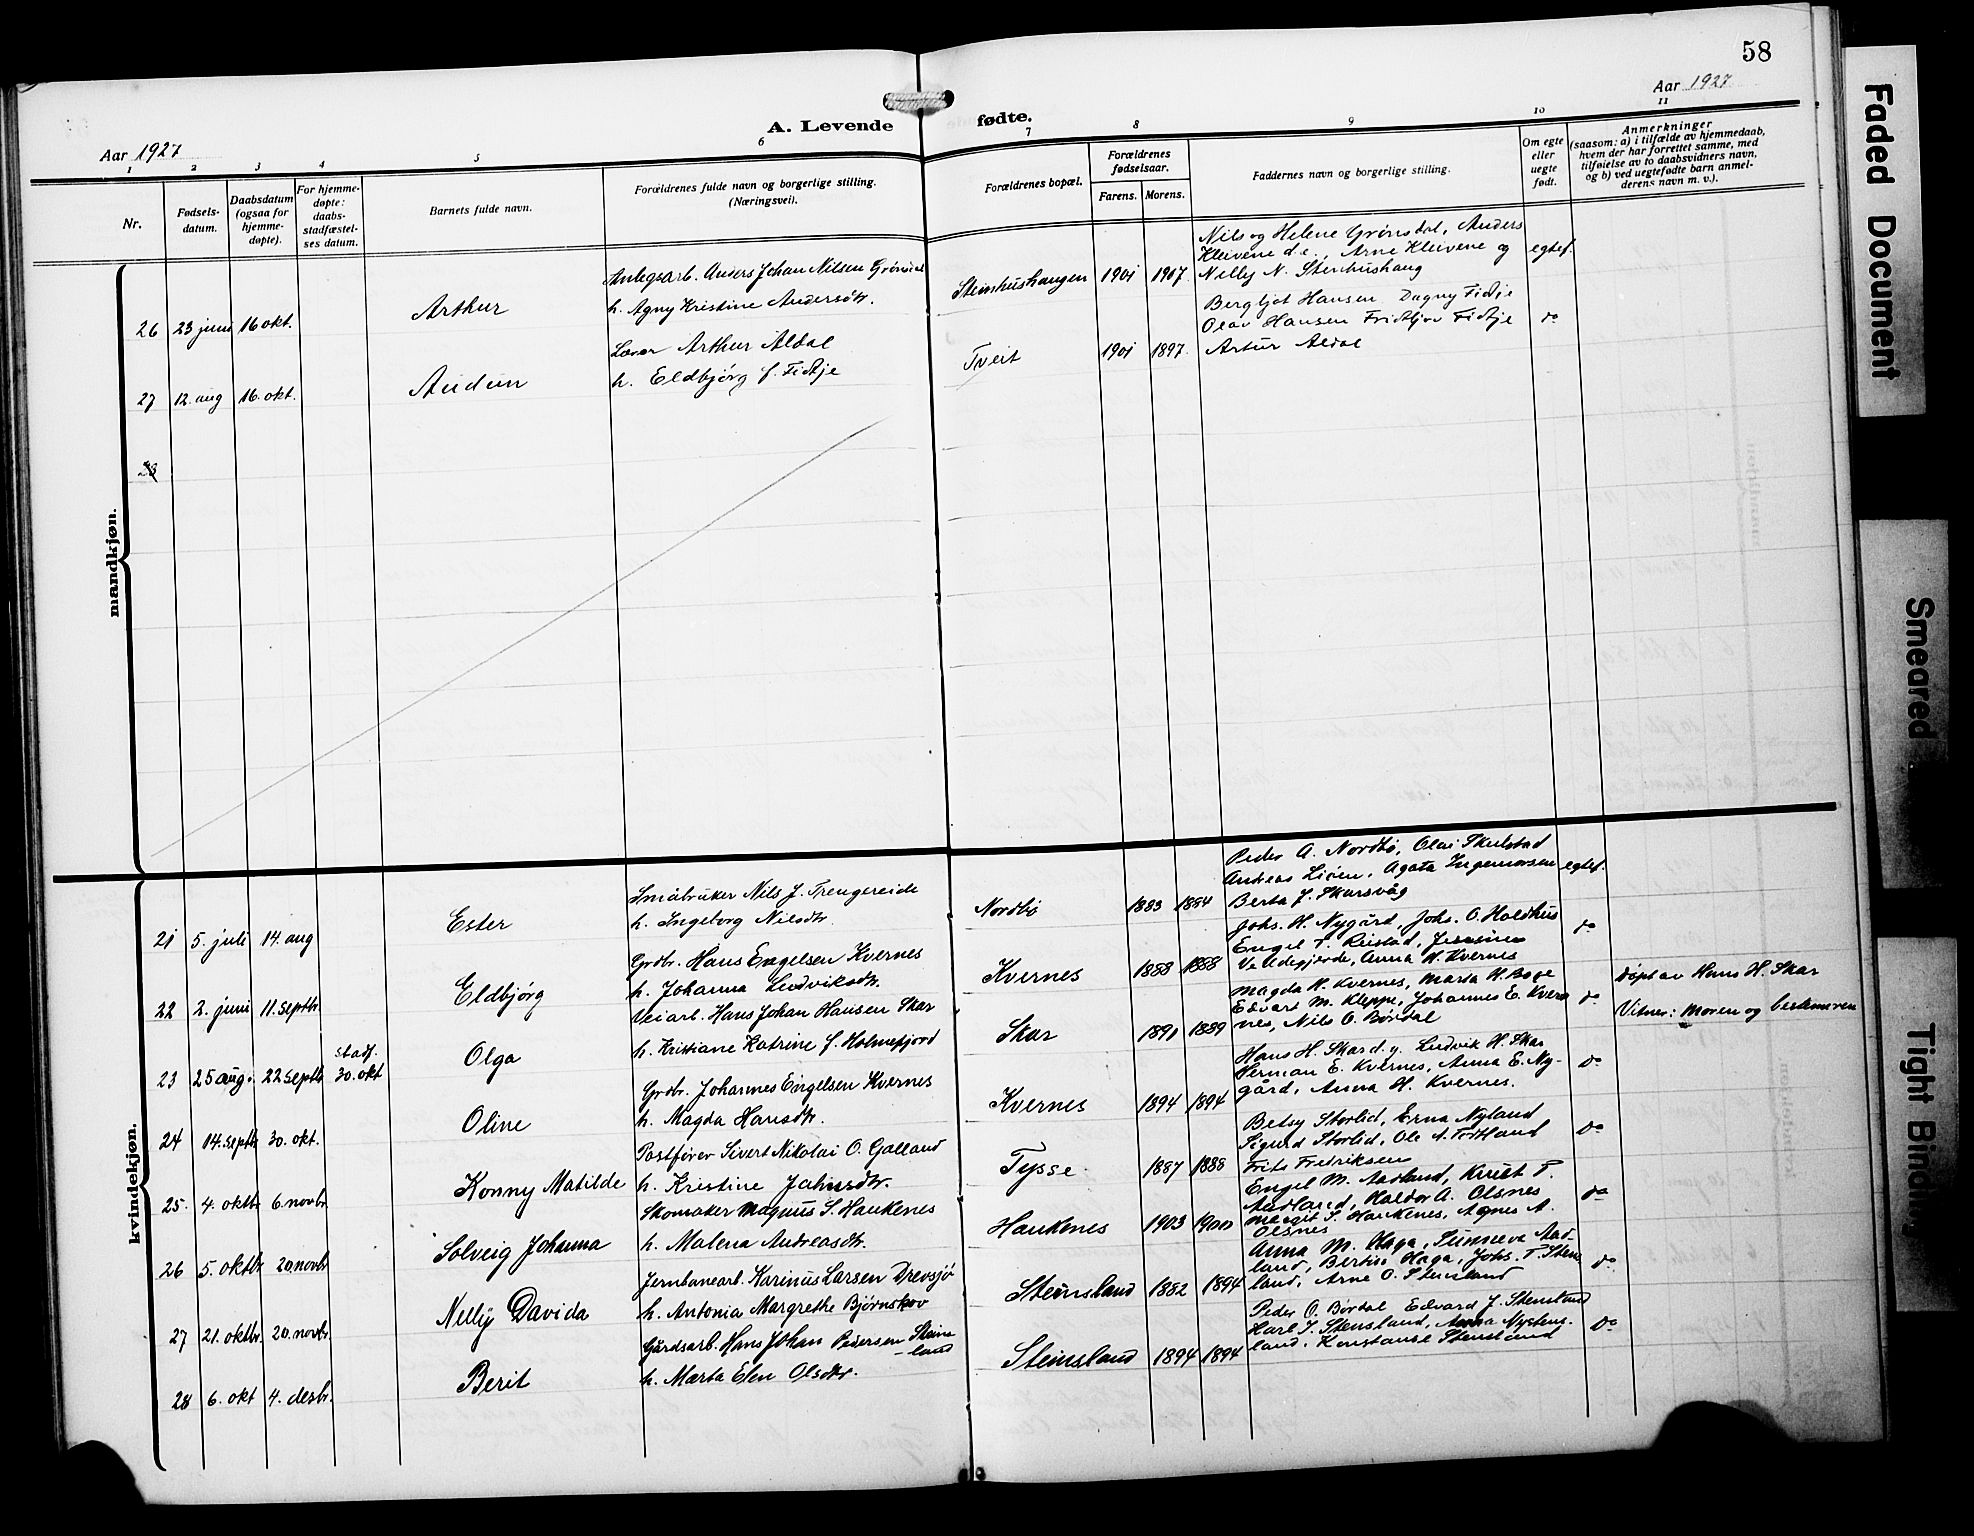 58
Aar 1927
Aar 1927
A. Levende fødte.
1 2 3 4 5 6 7 8 9 10 11
Nr.
Fødsels-
datum.
Daabsdatum
(ogsaa for
hjemme-
døpte).
For hjemme-
døpte:
daabs-
stadfæstel-
ses datum.
Barnets fulde navn.
Forældrenes fulde navn og borgerlige stilling.
(Næringsvei).
Forældrenes bopæl.
Forældrenes
fødselsaar.
Farens. Morens.
Faddernes navn og borgerlige stilling.
Om egte
eller
uegte
født.
Anmerkninger
(saasom: a) i tilfælde av hjemmedaab,
hvem der har forrettet samme, med
tilføielse av to daabsvidners navn,
og b) ved uegtefødte barn anmel-
derens navn m. v.).
mandkjøn.
26 23 juni 16 okt.
Arthur
Anlegsarb. Anders Johan Nilsen Grønsdal
h. Agny Kristine Andersdtr.
Steinshushaugen 1901 1907
Nils og Helene Grønsdal, Anders
Kleivene d.e., Arne Kleivene og
Nelly N. Stenhushaug
egtef.
27 12. aug 16. okt.
Audun
Lærer Arthur Aldal
h. Eldbjørg f. Fidtje
Tveit 1901 1897
Bergljot Hansen Dagny Fidtje
Olav Hansen Fridtjov Fidtje
Artur Aldal
do
28
kvindekjøn.
21 5. juli 14. aug
Ester
Småbruker Nils J. Trengereide
h. Ingeborg Nilsdtr.
Nordbø 1883 1884
Peder A. Nordbø, Olai Skulstad
Andreas Liøen, Agata Ingemorsen
Berta J. Skarsvåg
egtef.
22 2. juni 11. septbr
Eldbjørg
Grdbr. Hans Engelsen Kvernes
h. Johanna Ludviksdtr.
Kvernes 1888 1888
Johs. H. Nygård, Johs. O. Holdhus
Engel T. Reistad,
Anna H. Kvernes
do
23 25 aug. 22 septb stadf. 30. okt
Olga
Veiarb. Hans Johan Hansen Skar
h. Kristiane Katrine f. Holmefjord
Skar 1891 1889
Magda H. Kvernes, Marta H. Boge
Edvart M. Kleppe, Johannes E. Kver
nes, Nils O. Børdal
do
Døpt av Hans H. Skar
Vitner: Moren og bestemoren
24 14. septb 30. okt.
Oline
Grdbr. Johannes Engelsen Kvernes
h. Magda Hansdtr.
Kvernes 1894 1894
Hans H. Skar d.y. Ludvik H. Skar
Herman E. Kvernes, Anna E. Ny-
gård, Anna H. Kvernes.
do
25. 4. oktbr 6. novbr
Konny Matilde
Postfører Sivert Nikolai O. Galland
h. Kristine Jahnsdtr.
Tysse 1887 1888
Betsy Storlid, Erna Nyland
Sigurd Storlid, Ole A. Tortland
Frits Fredriksen
do
26 5. oktbr 20. novb
Solveig Johanna
Skomaker Magnus S. Haukenes
h. Malena Andreasdtr.
Haukenes 1903 1900
Engel M. Aadland, Knut T.
Aadland, Haldor A. Olsnes
Margit S. Haukenes, Agnes A.
Olsnes
do
27 21. oktbr. 20. novbr.
Nelly Davida
Jernbanearb. Karinus Larsen Drevsjø
h. Antonia Margrethe Bjørnskov
Steinsland 1882 1894
Anna M. Haga, Sunneva Aad-
land, Bertine Haga, Johs. T. Stens
land, Arne O. Stensland
do
28 6. okt 4. desbr.
Berit
Gårdsarb. Hans Johan Pedersen Steins
-land
h. Marta Elen Olsdtr.
Steinsland 1894 1894
Peder O. Børdal Edvard J. Stensland
Karl J. Stensland, Anna Nystens-
land, Konstanse Stensland
do
Faded Document
Smeared
Tight Binding